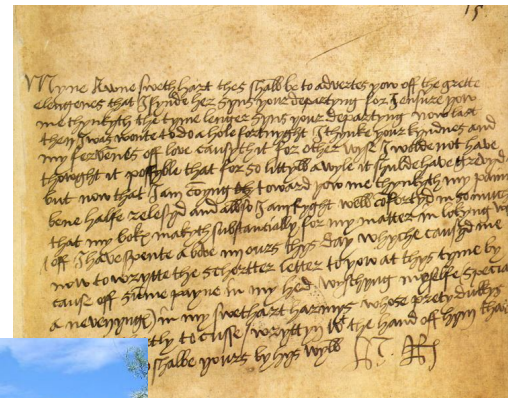 15
Myne awne swethart thes shall be to advertes yow off the grette
elengenes that I fynde her syns your departyng for I ensure yow
me thynkyth the tyme lenger syns your departyng now last
then I was wonte to do a hole fortnyght I thynke your kyndnes and
my fervenes off love causyth it for other wyse I wolde not have
thowght it possyble that for so littyll a wyle it shulde have grevyd
but now that I am comyng toward yow me thynkyth my painnes
bene halfe relesyd and allso I am ryght well cōfortyd in so muche
that my boke makyth substancially for my matter in lokyng wheroff
off I have spente a bove ours thys day whyche causyd me
now to wrytte the schortter letter to yow at thys tyme by
cause off sume payne in my hed wischyng my selfe specially
a nevenyng in my swethart harmys whose prety dukkys
to cusse wryttyn wt the hand off hym that
shalbe yours by hys wyll
H. R